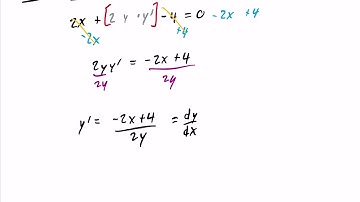 2x + [2 y · y'] - 4 = 0 -2x +4
-2x +4
2yy' = -2x + 4
2y 2y
y' = -2x + 4 / 2y = dy/dx